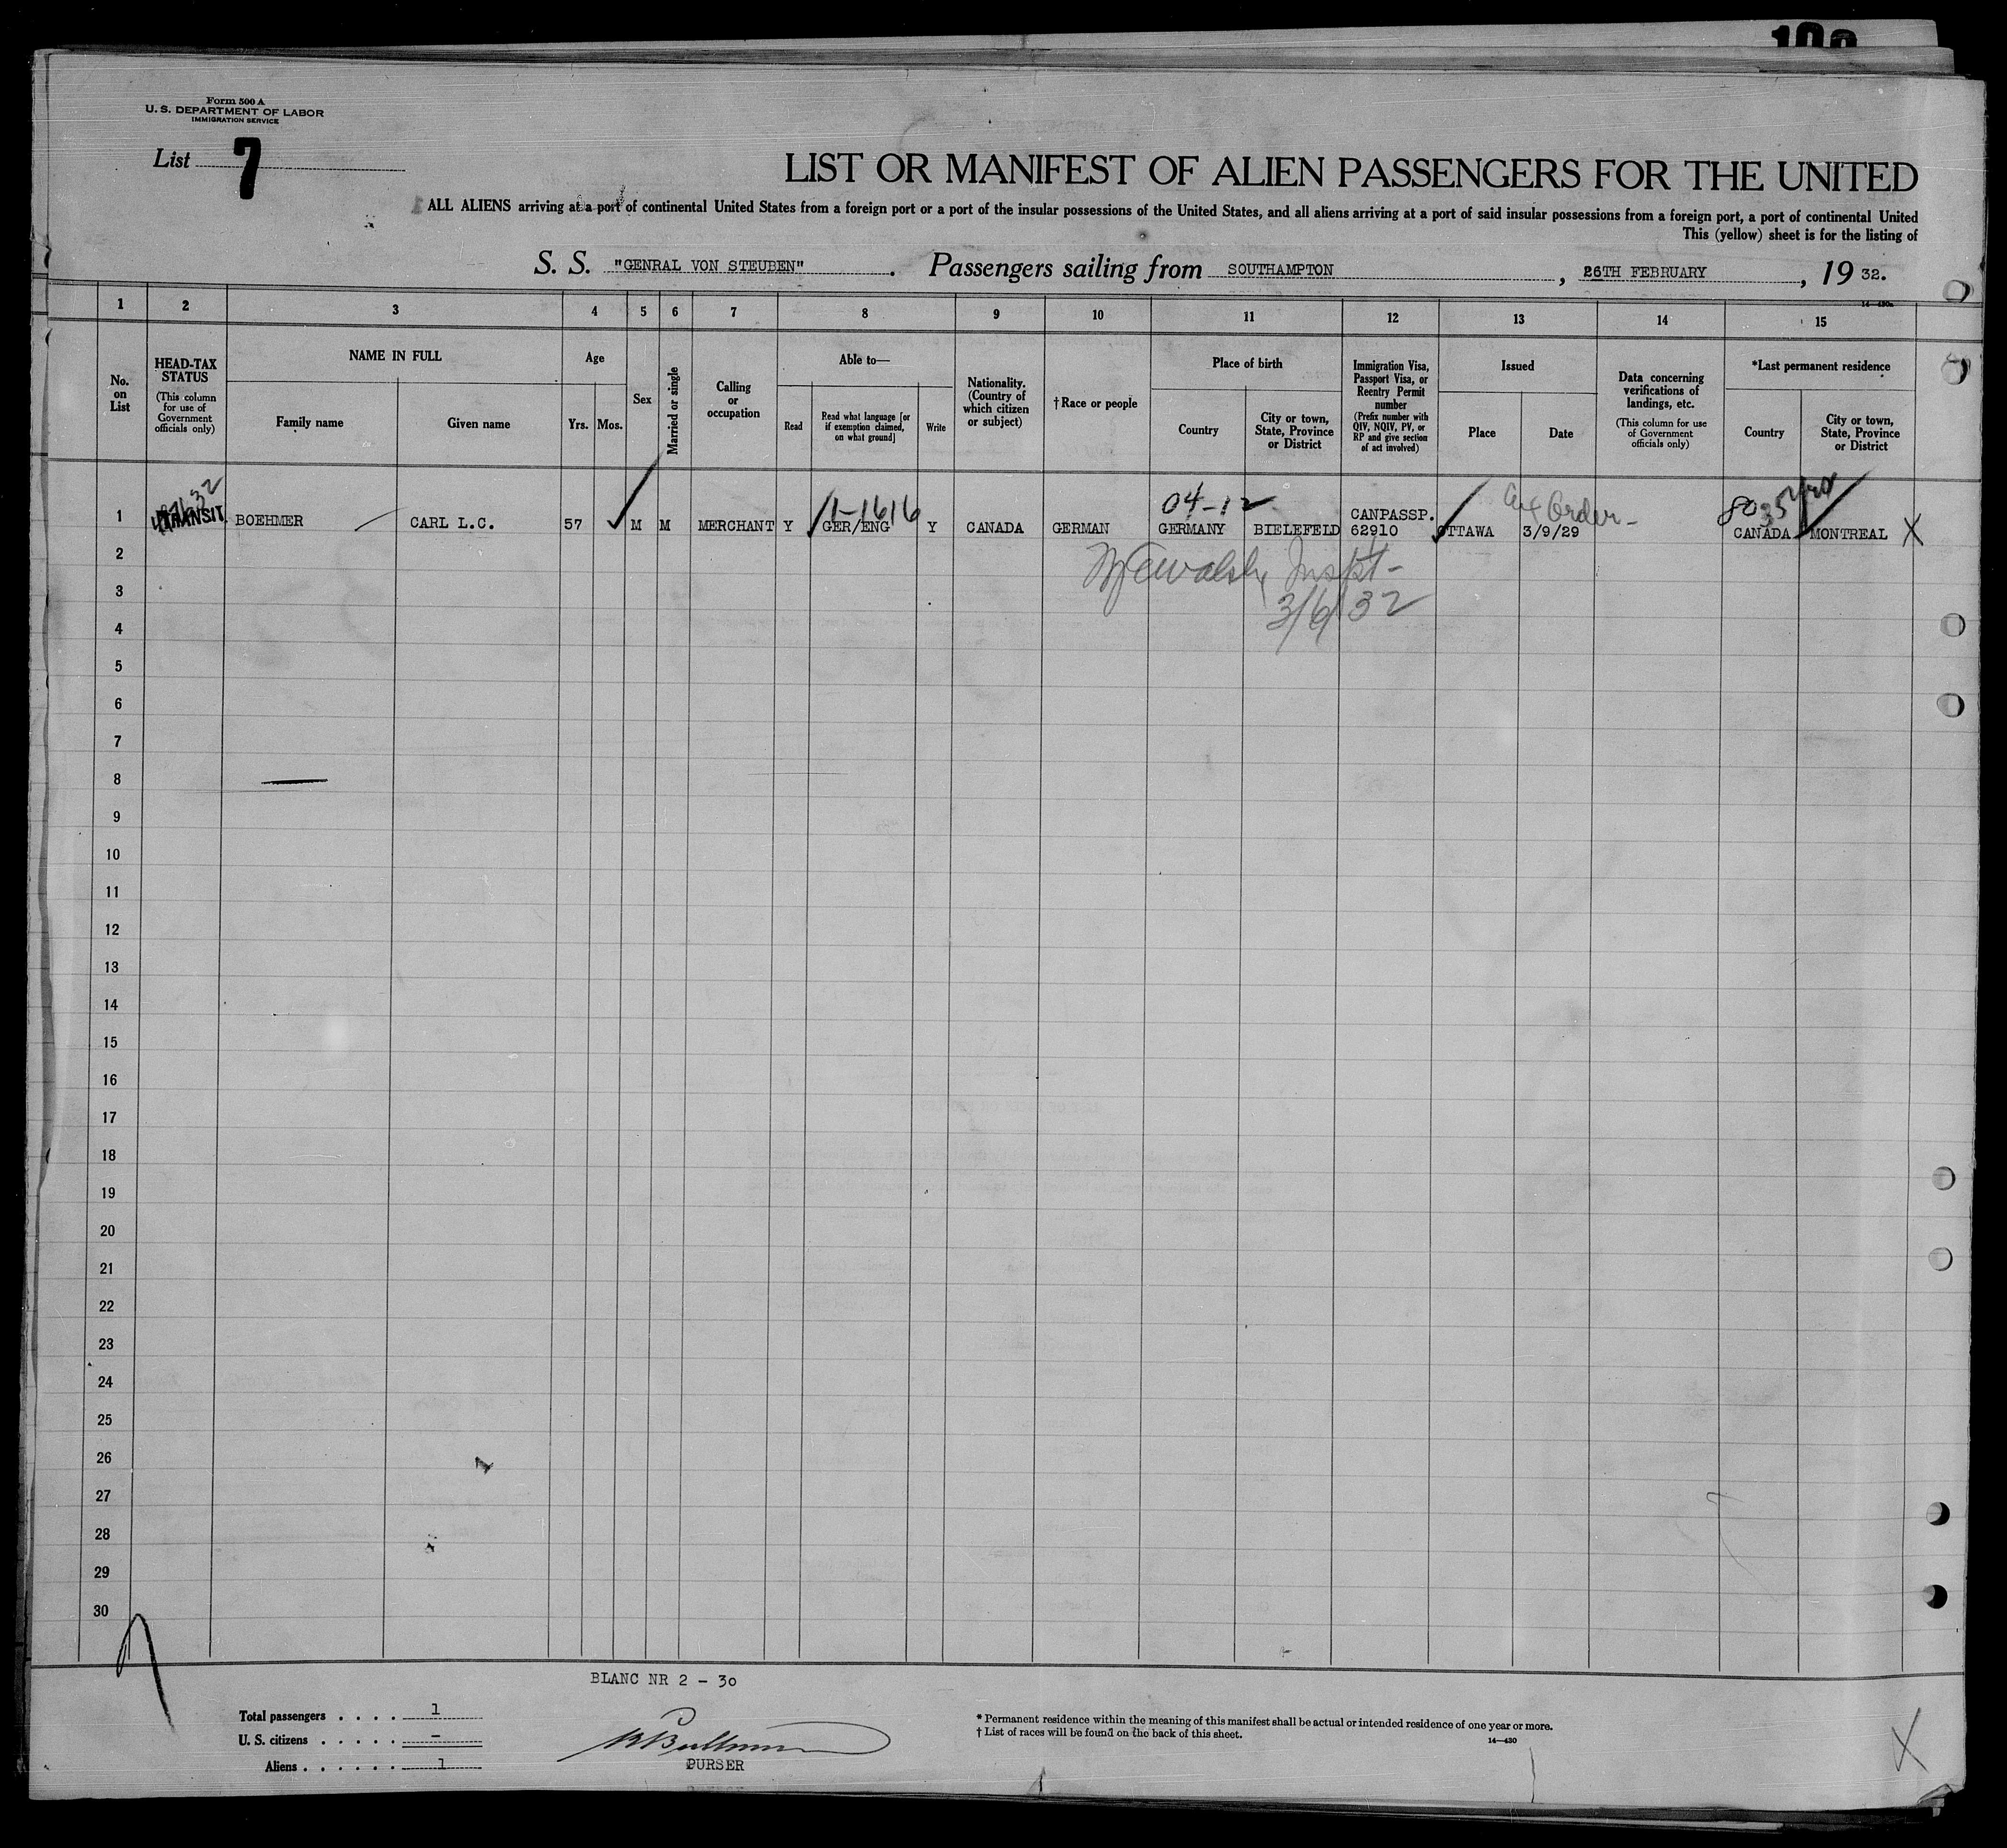 Form 500 A
U. S. DEPARTMENT OF LABOR
IMMIGRATION SERVICE
List 7
LIST OR MANIFEST OF ALIEN PASSENGERS FOR THE UNITED
ALL ALIENS arriving at a port of continental United States from a foreign port or a port of the insular possessions of the United States, and all aliens arriving at a port of said insular possessions from a foreign port, a port of continental United
This (yellow) sheet is for the listing of
S. S. "GENRAL VON STEUBEN". Passengers sailing from SOUTHAMPTON, 26TH FEBRUARY, 19 32.
14—430a
1 2 3 4 5 6 7 8 9 10 11 12 13 14 15
No. on List
HEAD-TAX STATUS
(This column for use of Government officials only)
NAME IN FULL
Family name
Given name
Age
Yrs. Mos.
Sex
Married or single
Calling or occupation
Able to—
Read
Read what language [or if exemption claimed, on what ground]
Write
Nationality. (Country of which citizen or subject)
†Race or people
Place of birth
Country
City or town, State, Province or District
Immigration Visa, Passport Visa, or Reentry Permit number
(Prefix number with QIV, NQIV, PV, or RP and give section of act involved)
Issued
Place
Date
Data concerning verifications of landings, etc.
(This column for use of Government officials only)
*Last permanent residence
Country
City or town, State, Province or District
1-1616 04-12 Order
1 TRANSIT BOEHMER CARL L.C. 57 M M MERCHANT Y GER/ENG Y CANADA GERMAN GERMANY BIELEFELD CANPASSP. 62910 OTTAWA 3/9/29 CANADA MONTREAL X
Walsh Inspt-
3/6/32
2
3
4
5
6
7
8
9
10
11
12
13
14
15
16
17
18
19
20
21
22
23
24
25
26
27
28
29
30
BLANC NR 2 - 30
Total passengers . . . . 1
U. S. citizens . . . . . -
Aliens . . . . . . 1
PURSER
* Permanent residence within the meaning of this manifest shall be actual or intended residence of one year or more.
† List of races will be found on the back of this sheet.
14—430
X